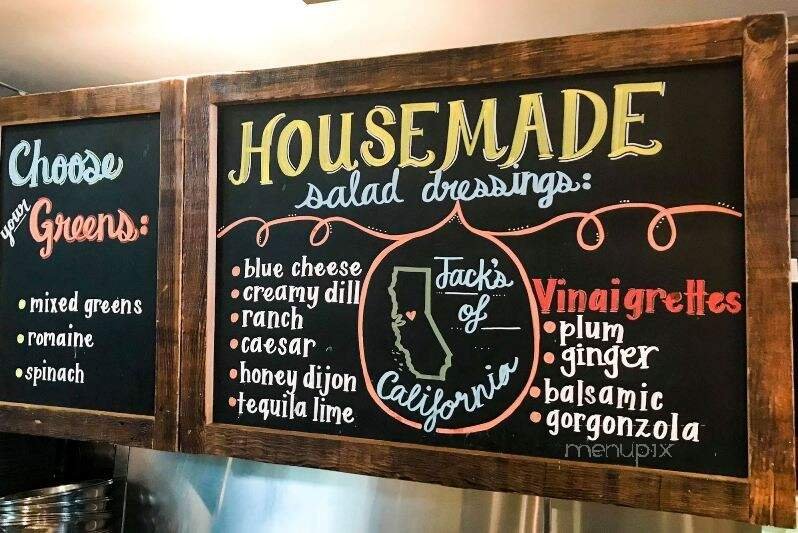 Choose
your
Greens:
mixed greens
romaine
spinach
HOUSEMADE
salad dressings:
• blue cheese
• creamy dill
• ranch
• caesar
• honey dijon
• tequila lime
Jack's
of
California
Vinaigrettes
• plum
• ginger
• balsamic
• gorgonzola
menupix